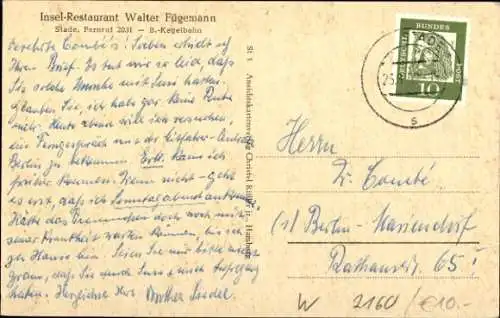 Insel-Restaurant Walter Fügemann
Stade, Fernruf 2031 - B.-Kegelbahn
Verehrte Combé's! Soeben erhielt ich
Ihren Brief. Es tut mir so leid, daß
Sie solche mit Susi hatten.
Glauben Sie, ich habe gar keine Ruhe
mehr. Heute abend will ich versuchen,
ein Ferngespräch mit
Berlin zu bekommen. Evtl. kann ich
früher kommen. Wenn nicht - geht
es erst, daß ich Sonntag abend
Hätte das doch noch mit
seiner Krankheit warten können bis ich
zu Hause bin. Seien Sie mir bitte nicht
gram, daß Sie durch Susi so viel Aufregung
haben. Herzlichst Ihre
St 1 Ansichtskartenverlag Christel Hamburg
BUNDES
BERLIN
POST
10
STADE
25
s
Herrn
Dr. Combé
(1) Berlin-Mariendorf
Rathausstr. 65 I
W 2160 / €10.-